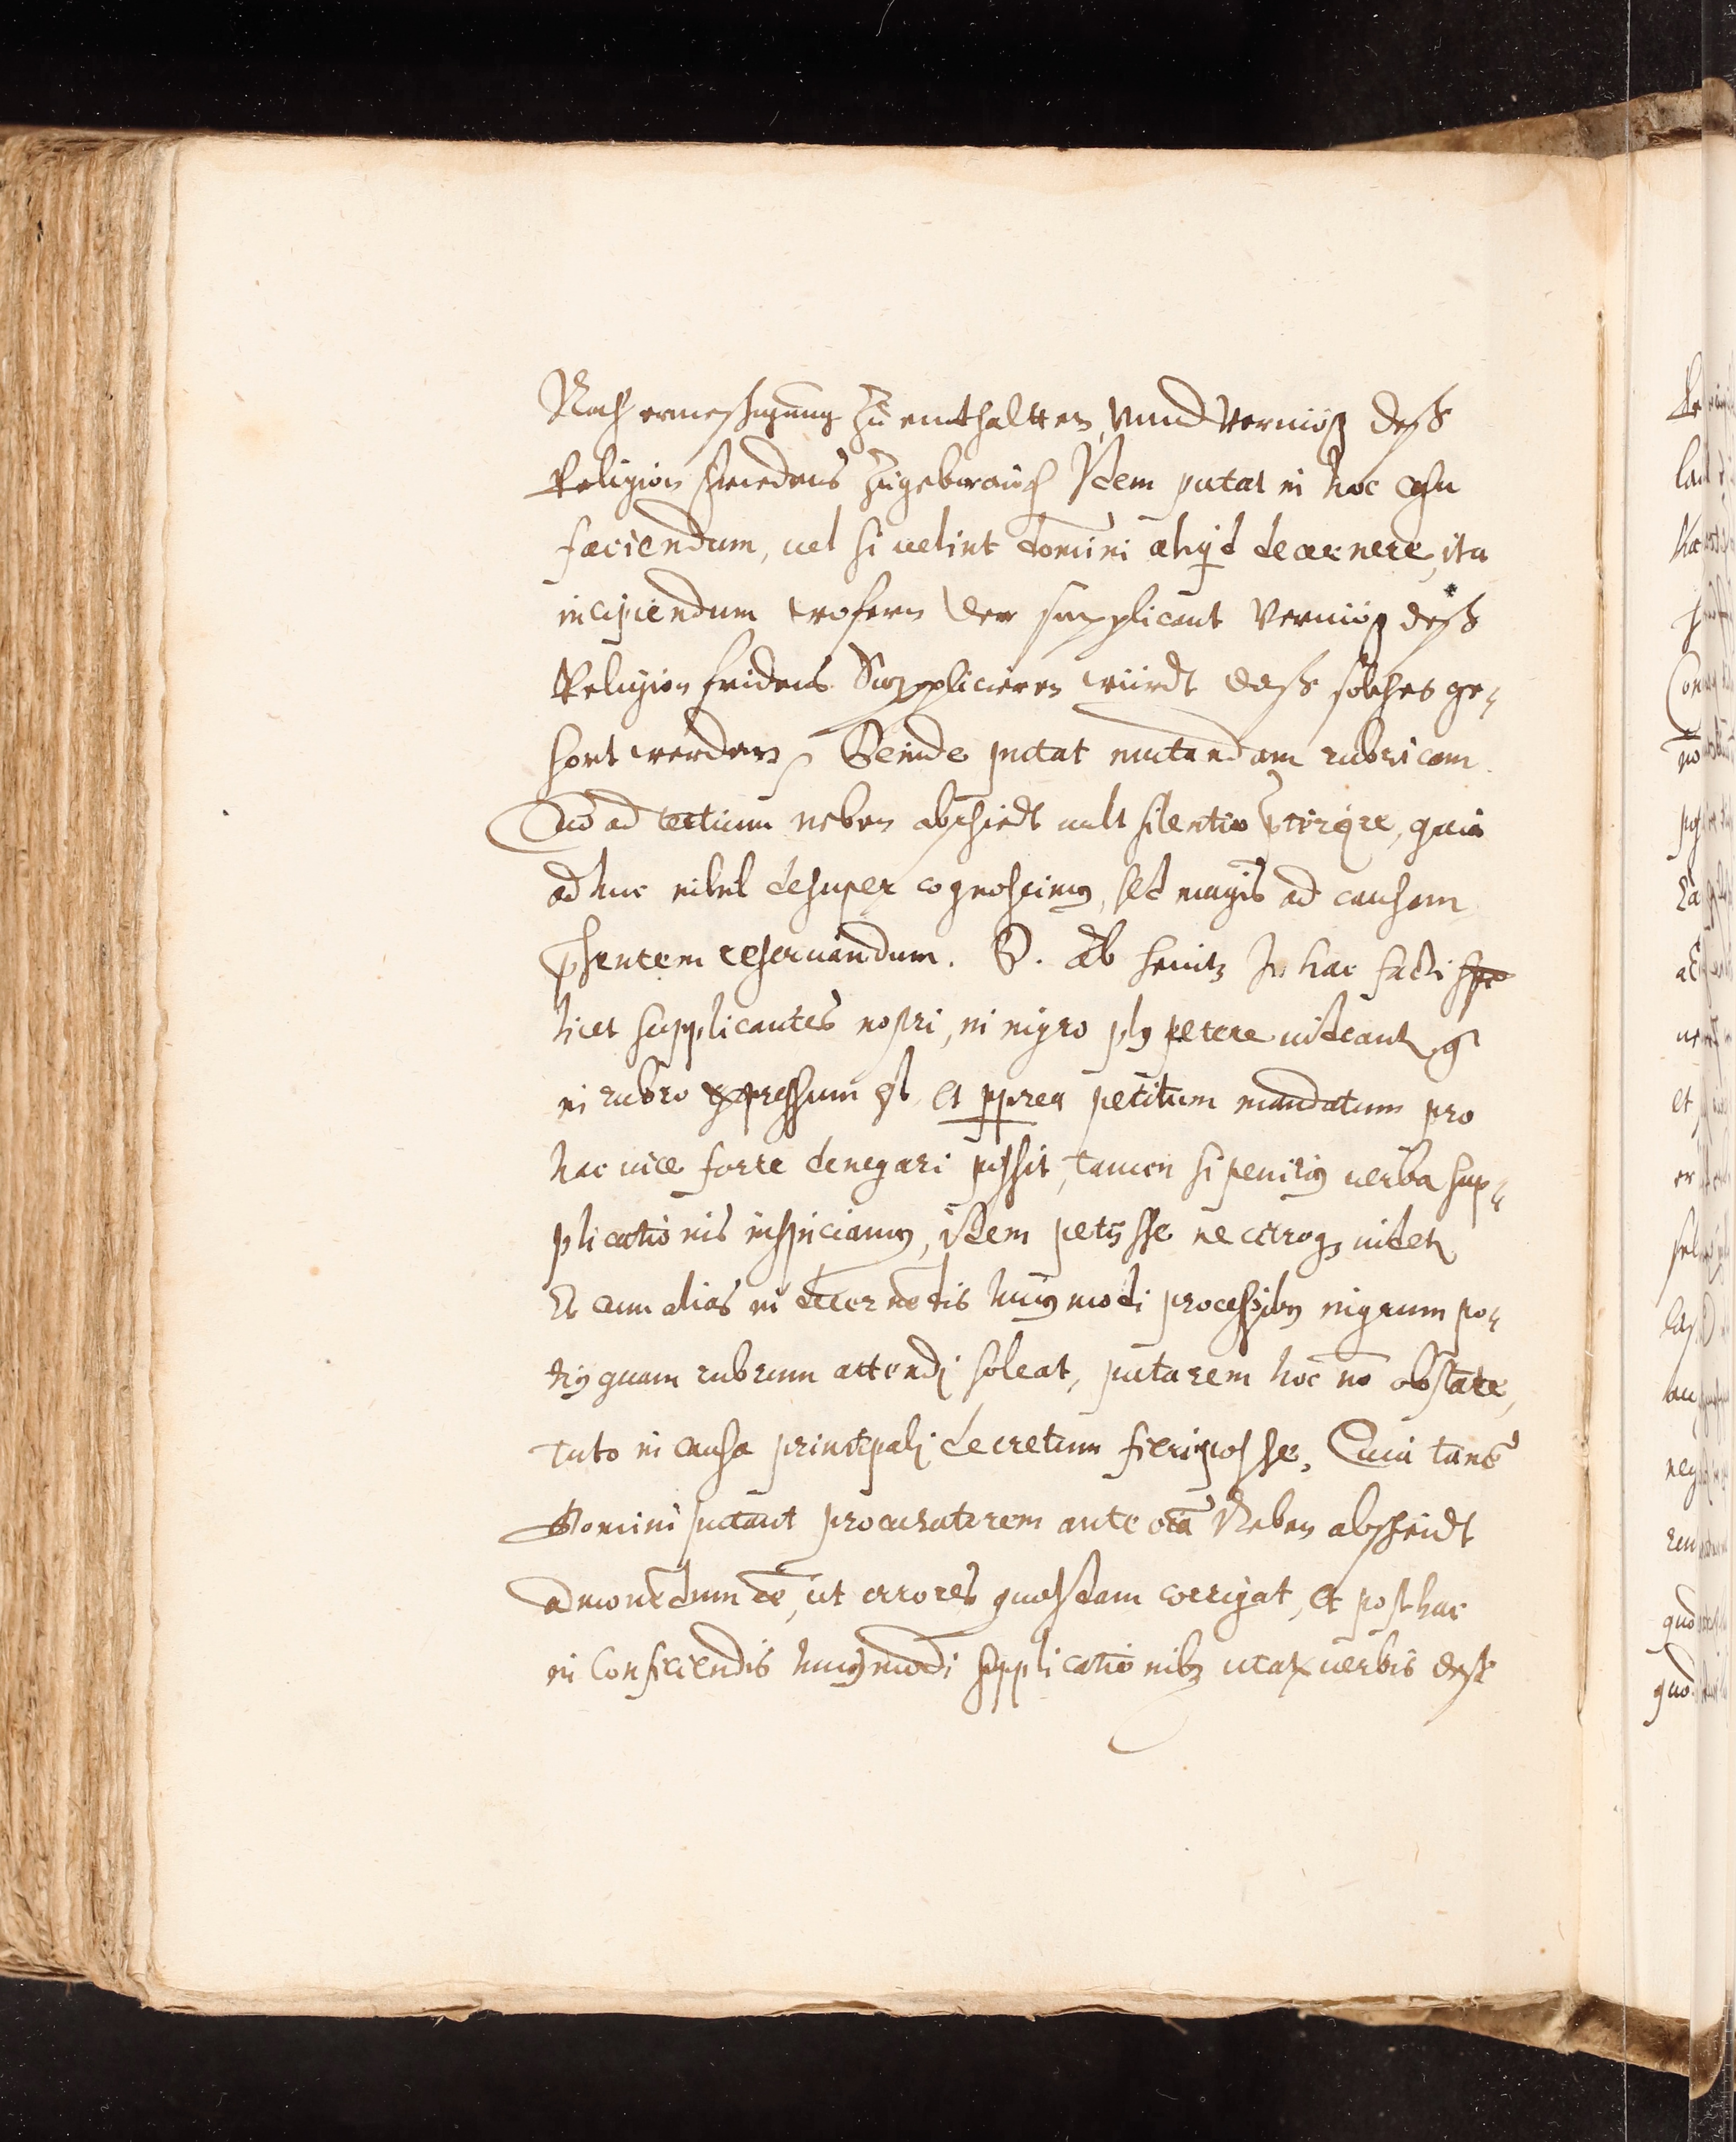 Nach ermessigung zu enthaltten, vnnd vermög deß
Religion friedens zugebrauch Idem putat in hoc casu
faciendum, uel si uelint domini aliqd decernere, ita
incipiendum wofern der supplicant vermög deß
Religion fridens Supplicieren würdt daß solches ge-
hort werden, Deinde putat mutandam rubricam
Quo ad tertium neben abschiedt uult silentio pterire, quia
ad huc nihil desuper cognoscimus, sed magis ad causam
psentem reseruandum. D. ab In hac facti
licet supplicantes nostri, in nigro plus petere uideant, q
in rubro expressum est et pprea petitum mandatum pro
hac uice forte denegari possit, tamen si penitus uerba sup-
plicationis inspiciamus, idem petysse ne utroq uidet
Et cum alias in decernedis huiusmodi processibus nigrum po-
tius quam rubrum attendi soleat, putarem hoc no obstate,
tuto in causa principali decretum fieri posse, Quia tame
Domini putant procuratorem ante oia Neben abscheidt
admonedum ee, ut errores quosdam corrigat, et post hac
in Conficiendis huiusmodi supplicationibus utatur uerbis deß